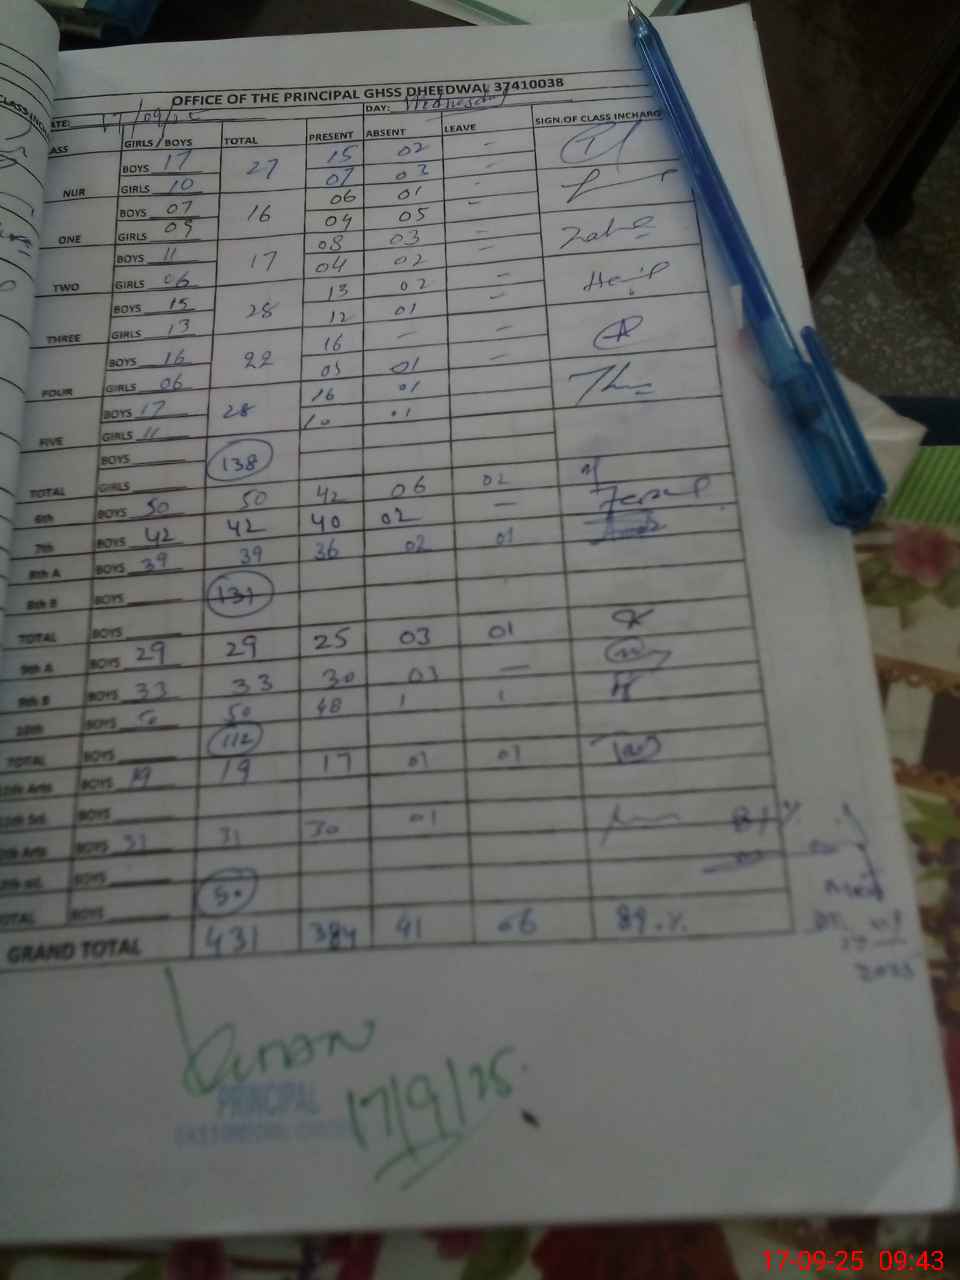 OFFICE OF THE PRINCIPAL GHSS DHEEDWAL 37410038
ATE: 17/09/25 DAY: Wednesday
ASS GIRLS / BOYS TOTAL PRESENT ABSENT LEAVE SIGN.OF CLASS INCHARG
BOYS 17 27 15 02 –
NUR GIRLS 10 07 03 –
BOYS 07 16 06 01 –
ONE GIRLS 09 04 05 –
BOYS 11 17 08 03 –
TWO GIRLS 06 04 02 –
BOYS 15 28 13 02 –
THREE GIRLS 13 12 01 –
BOYS 16 22 16 – –
FOUR GIRLS 06 05 01 –
BOYS 17 28 16 01
FIVE GIRLS 11 10 01
BOYS 138
TOTAL GIRLS
6th BOYS 50 50 42 06 02
7th BOYS 42 42 40 02 –
8th A BOYS 39 39 36 02 01
8th B BOYS 131
TOTAL BOYS
9th A BOYS 29 29 25 03 01
9th B BOYS 33 33 30 03 –
10th BOYS 50 50 48 1 1
TOTAL BOYS 112
Arts BOYS 19 19 17 01 01
BOYS
Arts BOYS 31 31 30 01
BOYS
OTAL BOYS 50
GRAND TOTAL 431 384 41 06 89.%
2025
PRINCIPAL
17/9/25
17-09-25 09:43